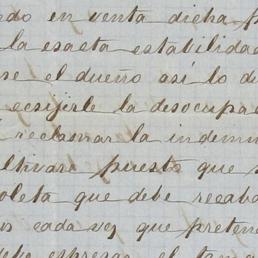 ndo en venta dicha p
la esacta estabilidad
se el dueño así lo d
ecsijirle la desocupa
reclamar la indemn
ultivar puesto que s
oleta que debe recaba
us cada vez que preten
debe espresar el tam